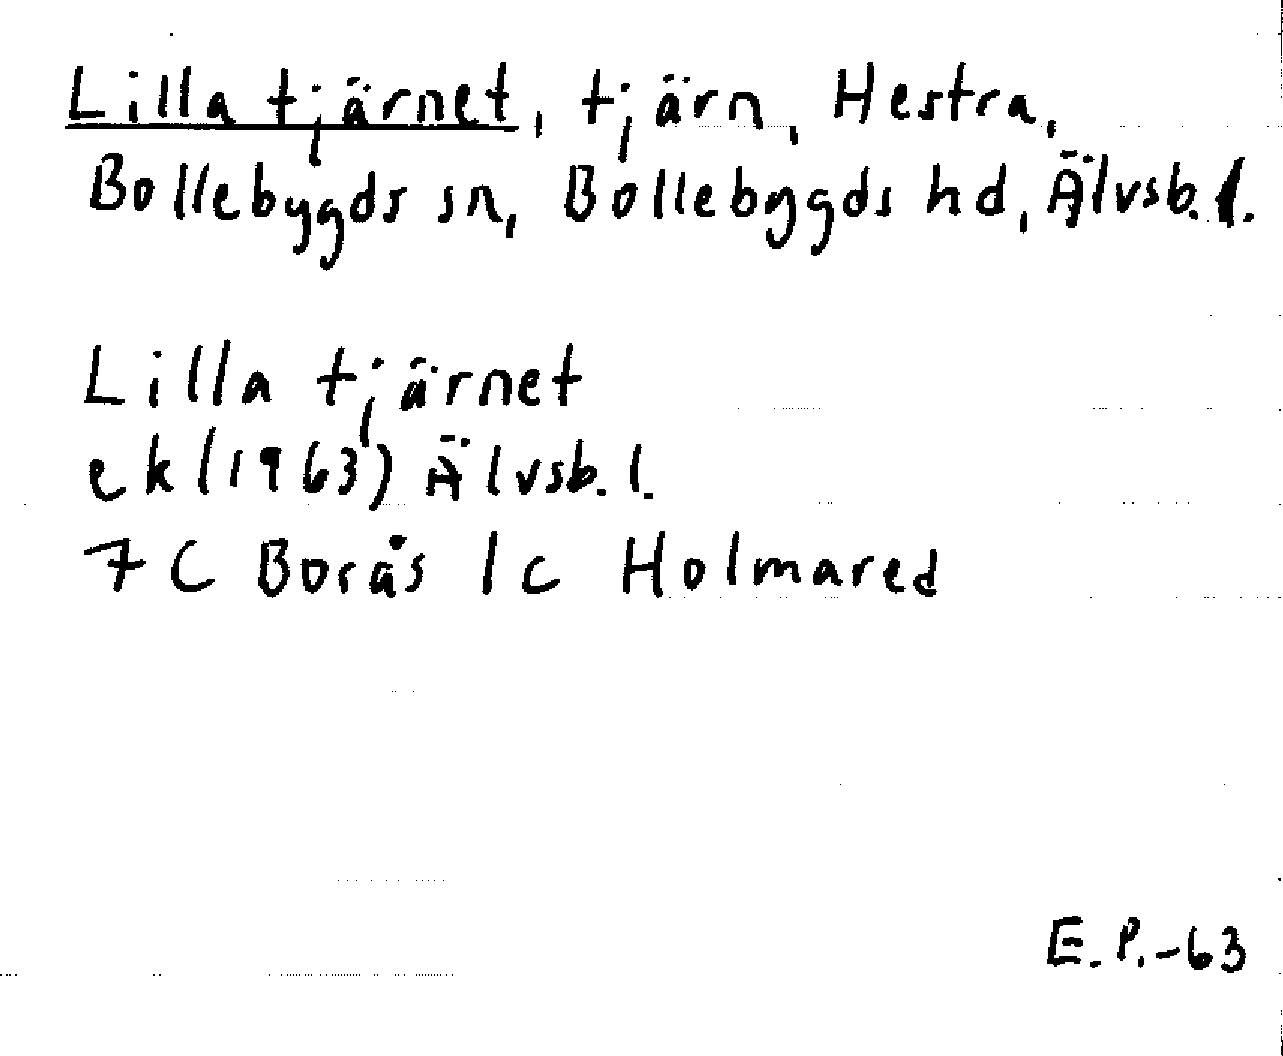 Lilla tjärnet, tjärn, Hestra,
Bollebygds sn, Bollebygds hd, Älvsb. l.
Lilla tjärnet
ek (1963) Älvsb. l.
7 C Borås 1 c Holmared
E. P. -63